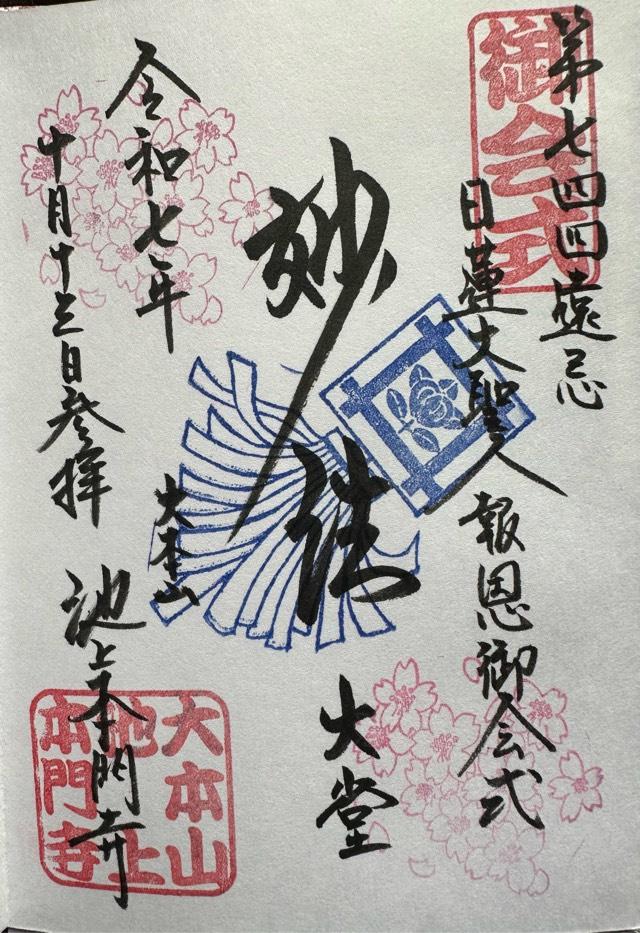 御会式
第七四四遠忌
日蓮大聖人報恩御会式
妙法
大堂
令和七年
十月十三日参拝
大本山
池上本門寺
大本山
池上
本門寺